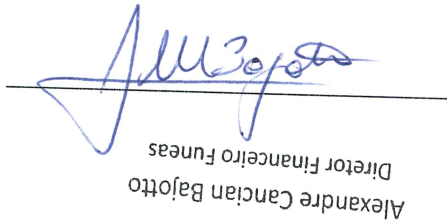 Alexandre Cancian Bajotto
Diretor Financeiro Funeas